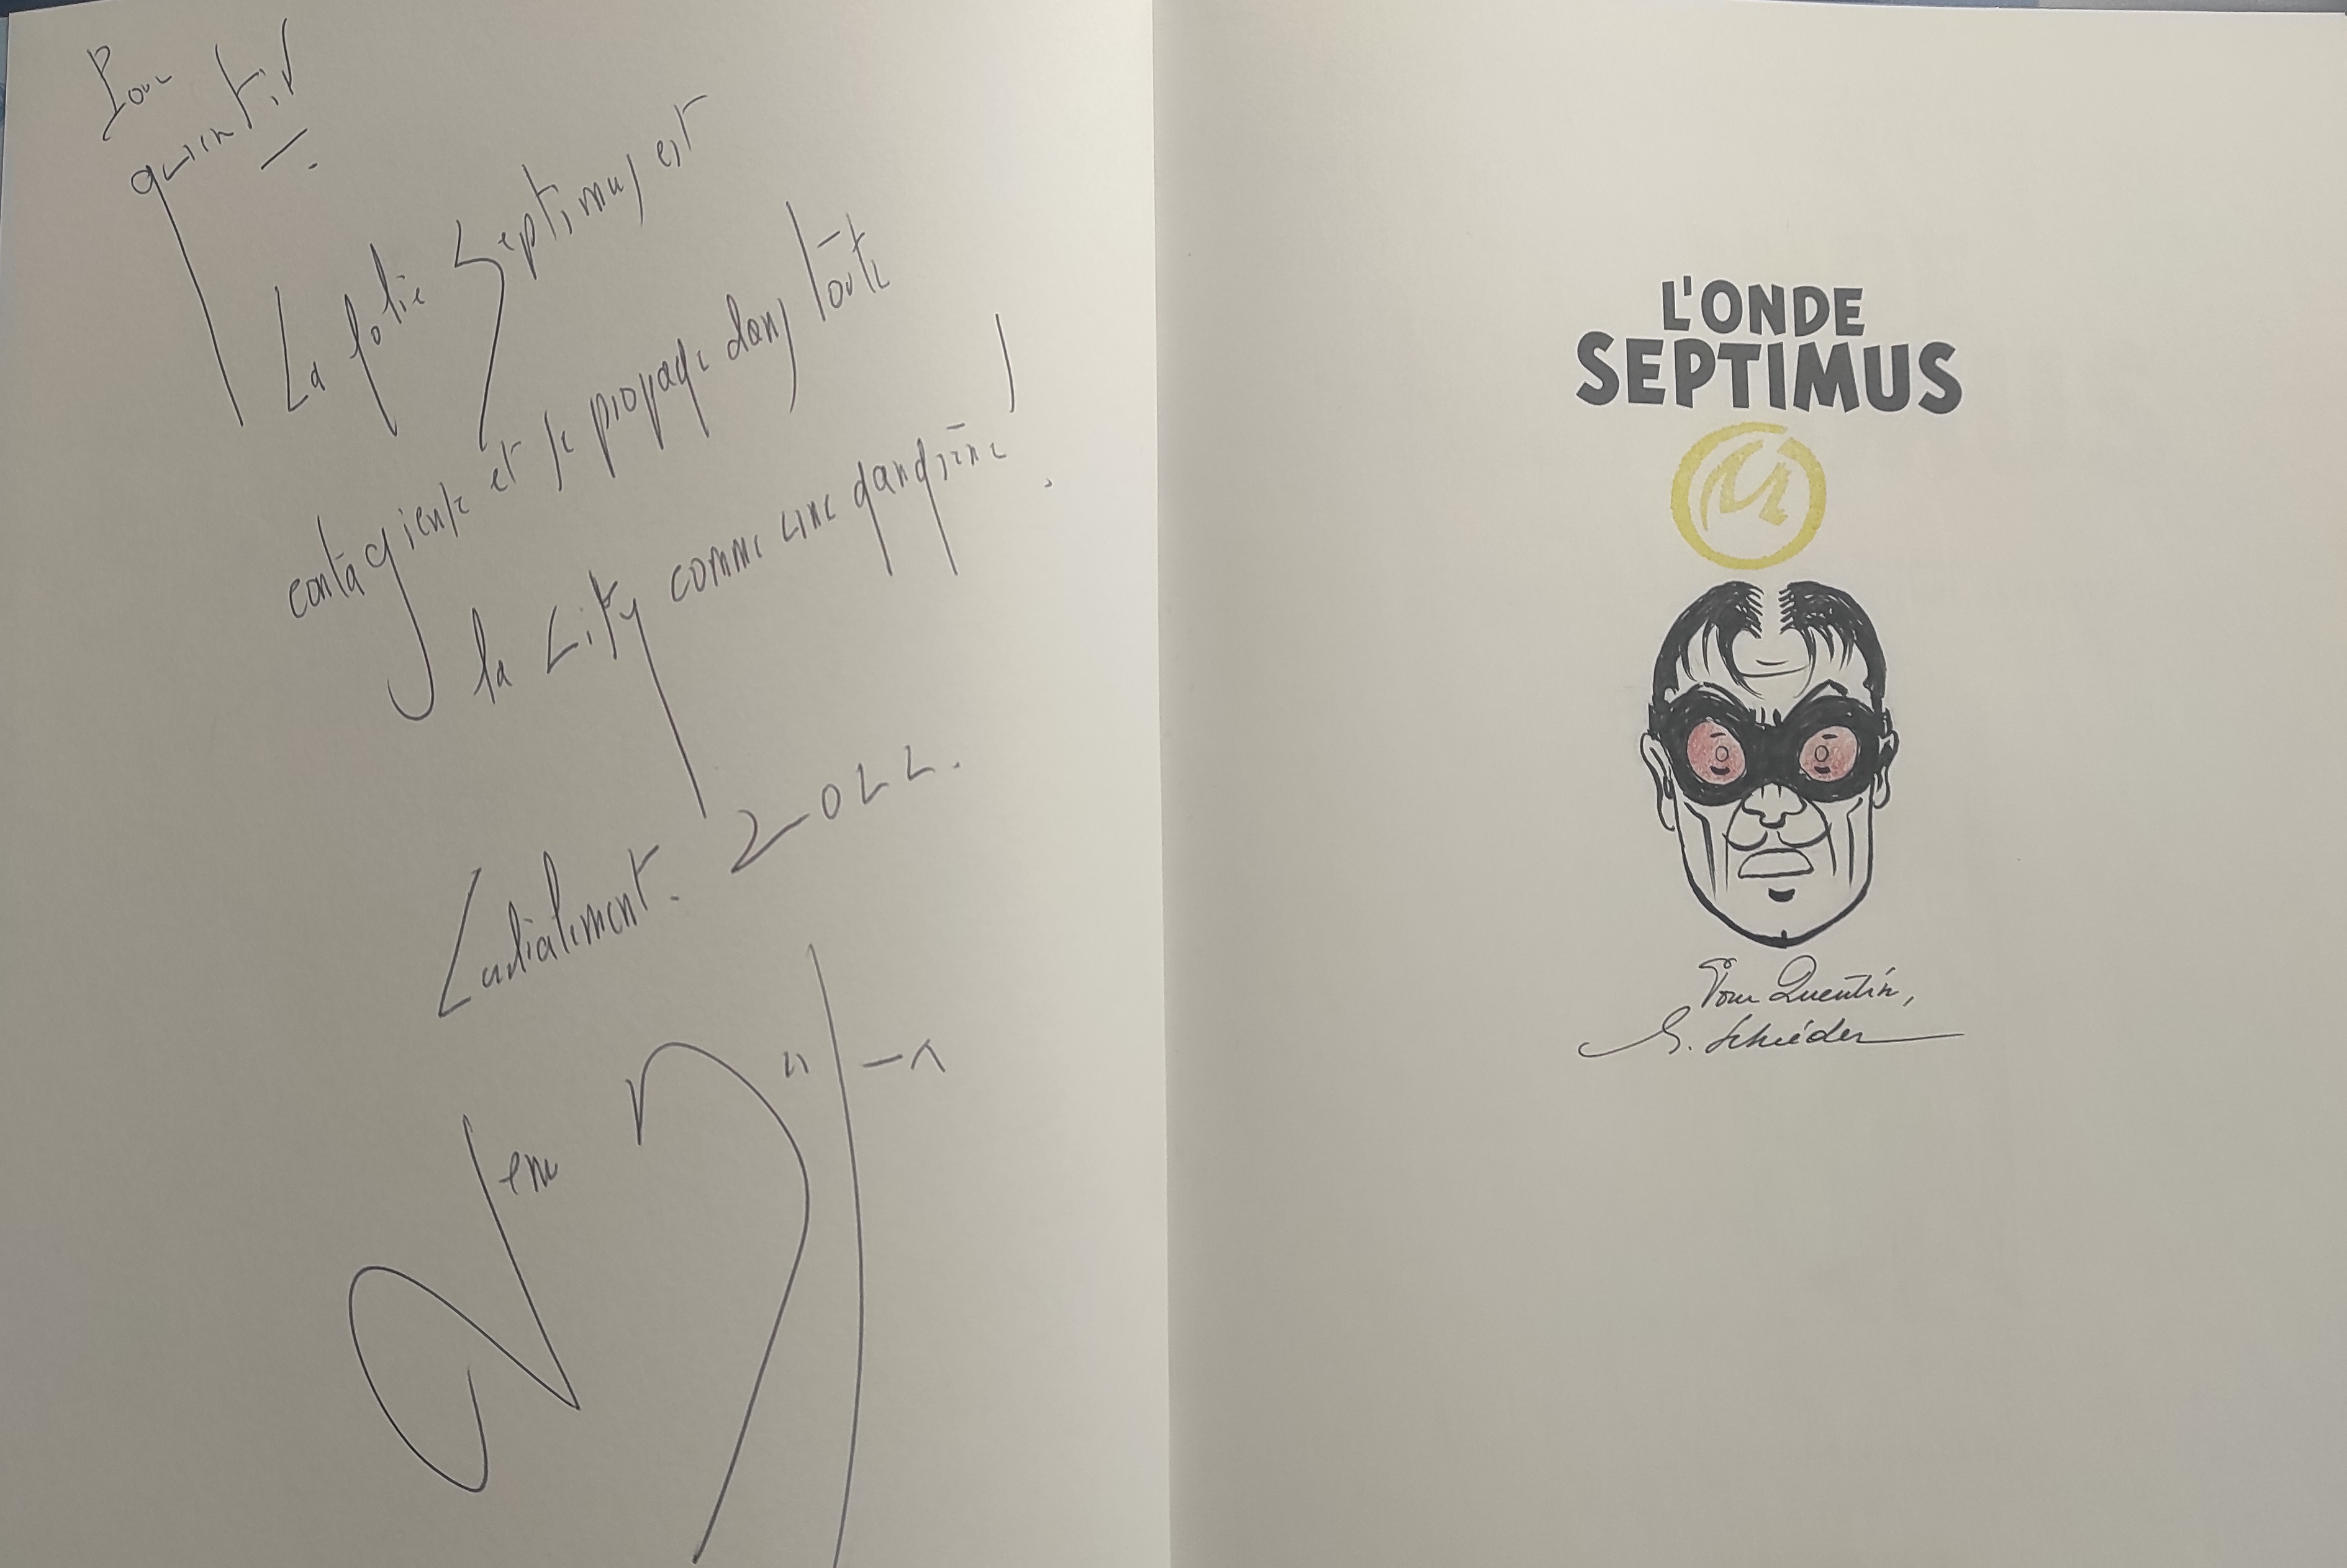 Pour
Quentin
La folie Septimus est
contagieuse et se propage dans toute
la City comme une gangrène !
Cordialement. 2022.
Jean Dufaux
L'ONDE
SEPTIMUS
Pour Quentin,
S. Schréder